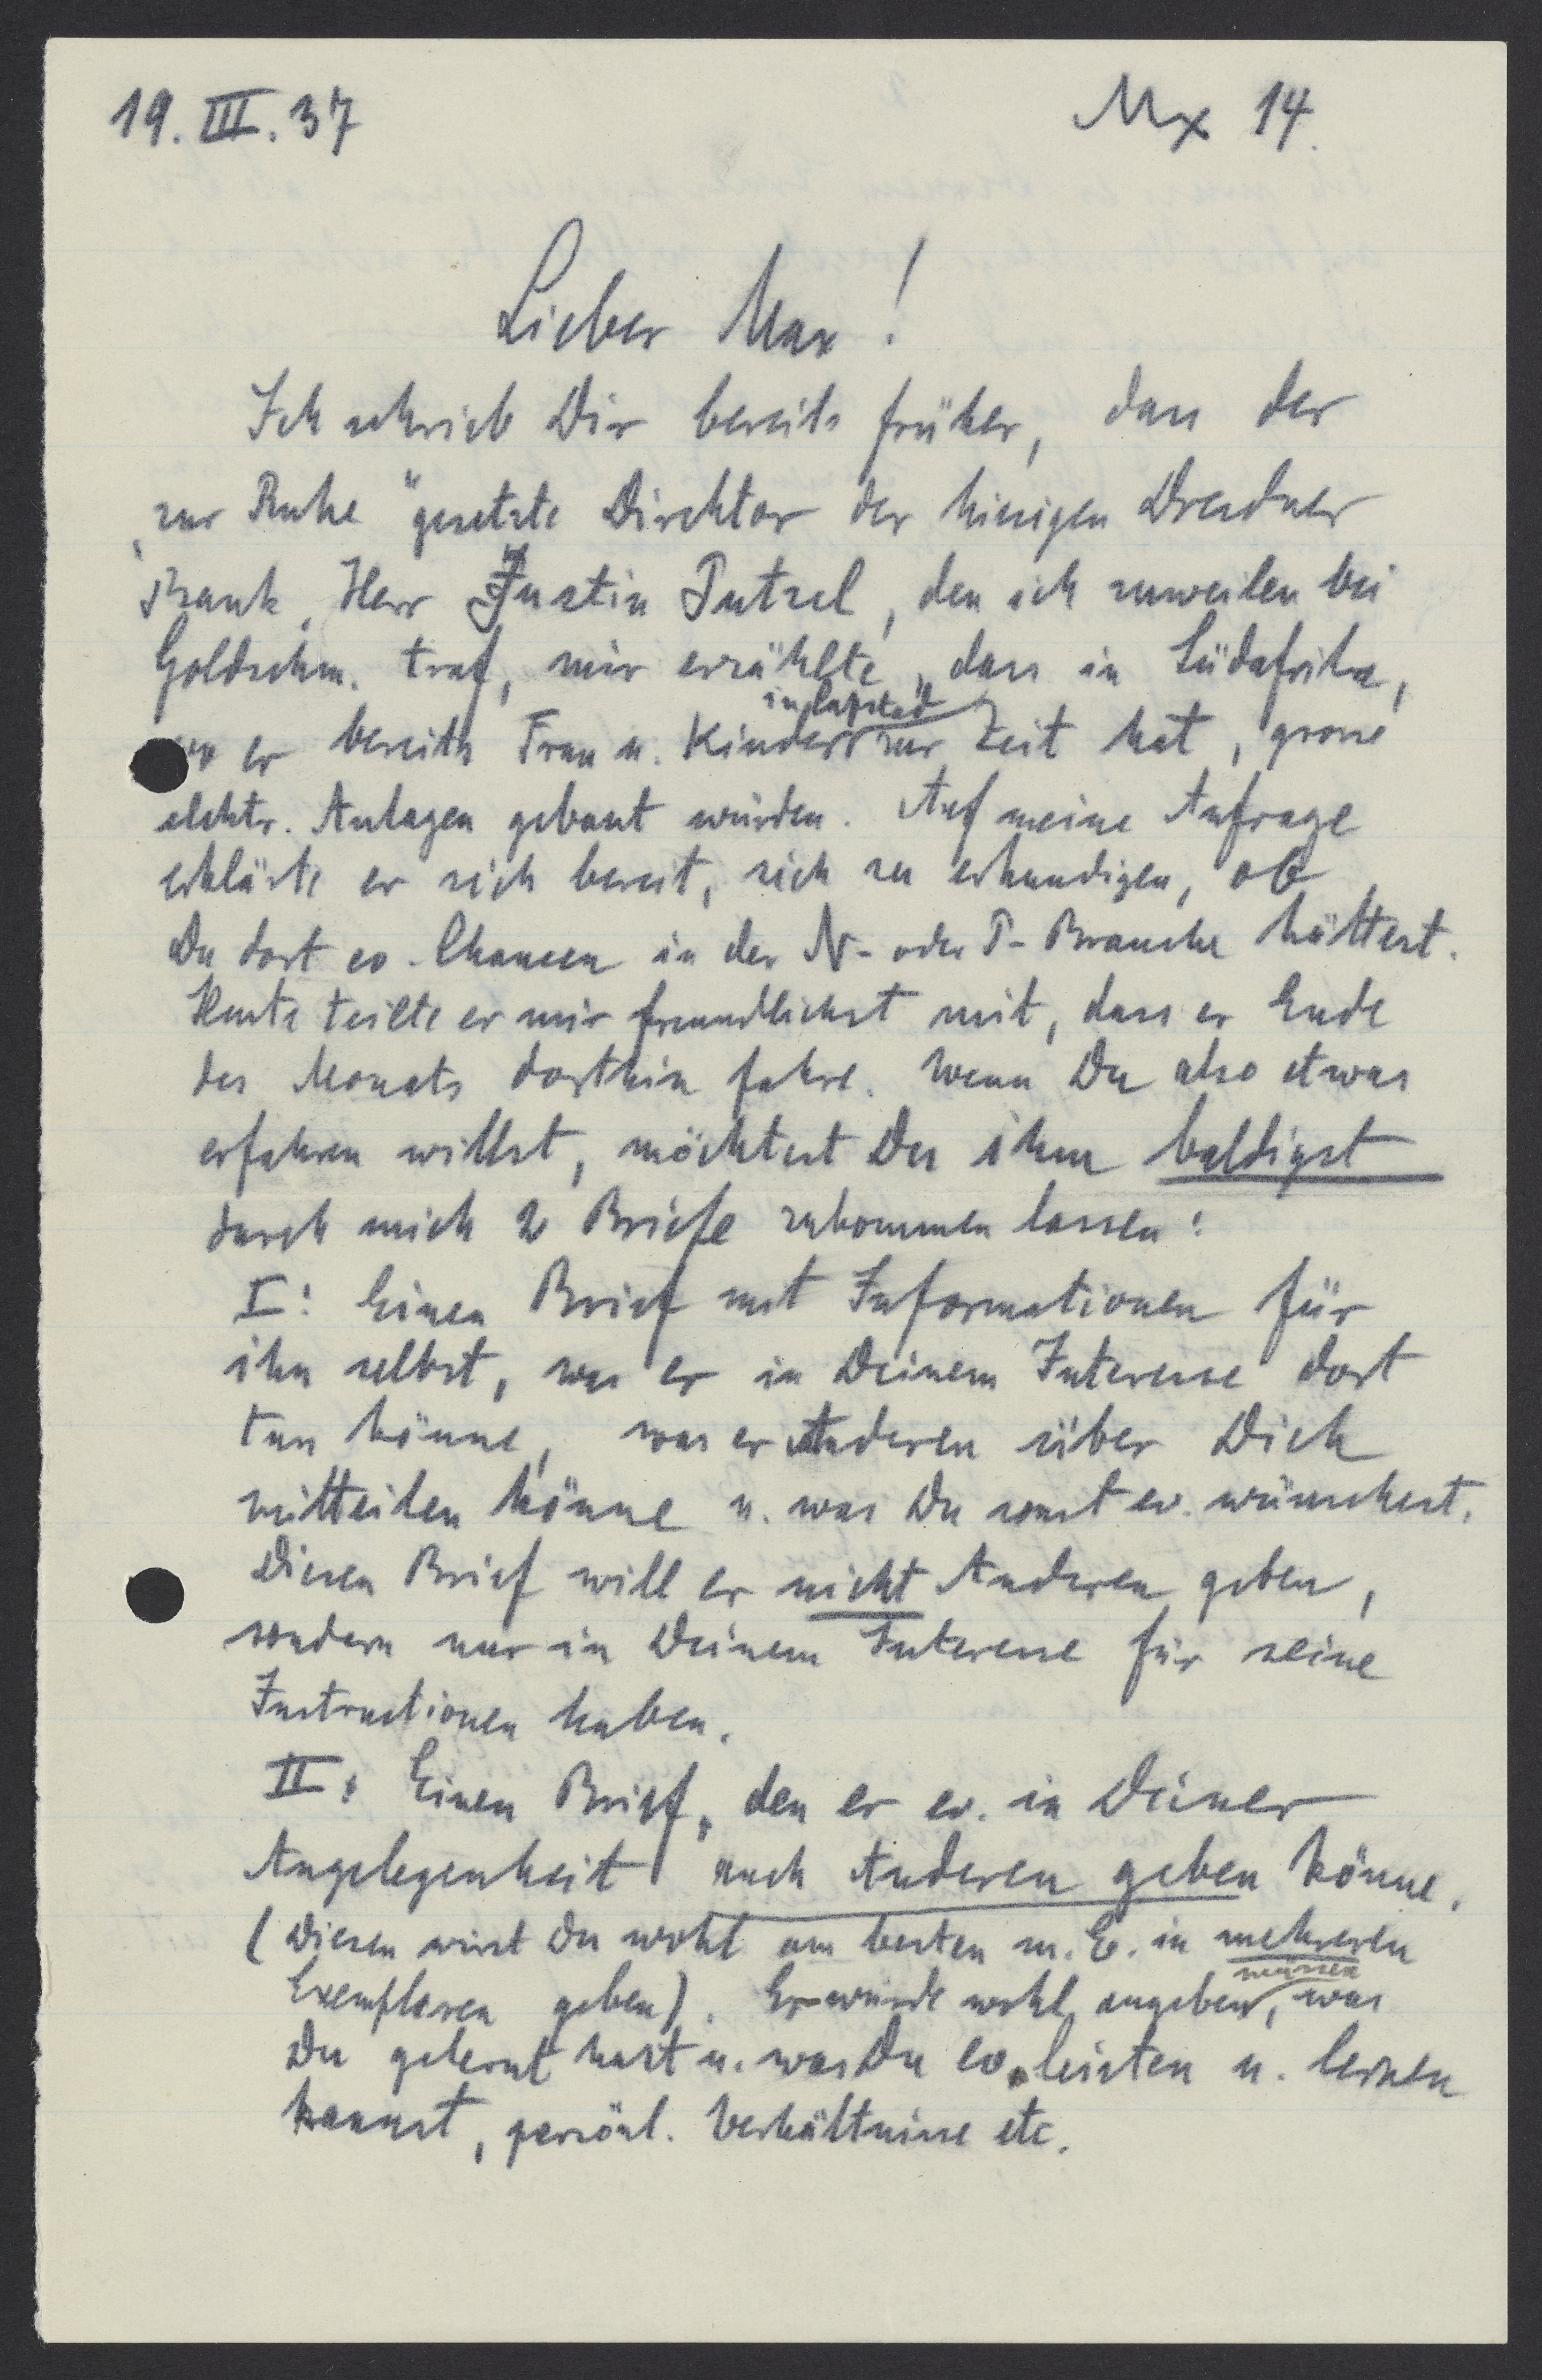 19. III. 37
Mx 14.
Lieber Max!
Ich schrieb Dir bereits früher, dass der
„zur Ruhe" gesetzte Direktor der hiesigen Dresdner
Bank, Herr Justin Putzel, den ich zuweilen bei
Goldschm. traf, mir erzählte, dass in Südafrika,
in Capstadt
wo er bereits Frau u. Kinder zur Zeit hat, grosse
elektr. Anlagen gebaut würden. Auf meine Anfrage
erklärte er sich bereit, sich zu erkundigen, ob
Du dort ev. Chancen in der N- oder P- Branche hättest.
Heute teilte er mir freundlichst mit, dass er Ende
des Monats dorthin fahre. Wenn Du also etwas
erfahren willst, möchtest Du ihm baldigst
durch mich 2 Briefe zukommen lassen:
I: Einen Brief mit Informationen für
ihn selbst, was er in Deinem Interesse dort
tun könne, was er Anderen über Dich
mitteilen könne u. was Du sonst ev. wünschest.
Diesen Brief will er nicht Anderen geben,
sondern nur in Deinem Interesse für seine
Instructionen haben.
II: Einen Brief, den er ev. in Deiner
Angelegenheit auch Anderen geben könne.
(Diesen wirst Du wohl am besten m. E. in mehreren
müssen
Exemplaren geben). Er würde wohl angeben, was
Du gelernt hast u. was Du ev. leisten u. lernen
kannst, persönl. Verhältnisse etc.